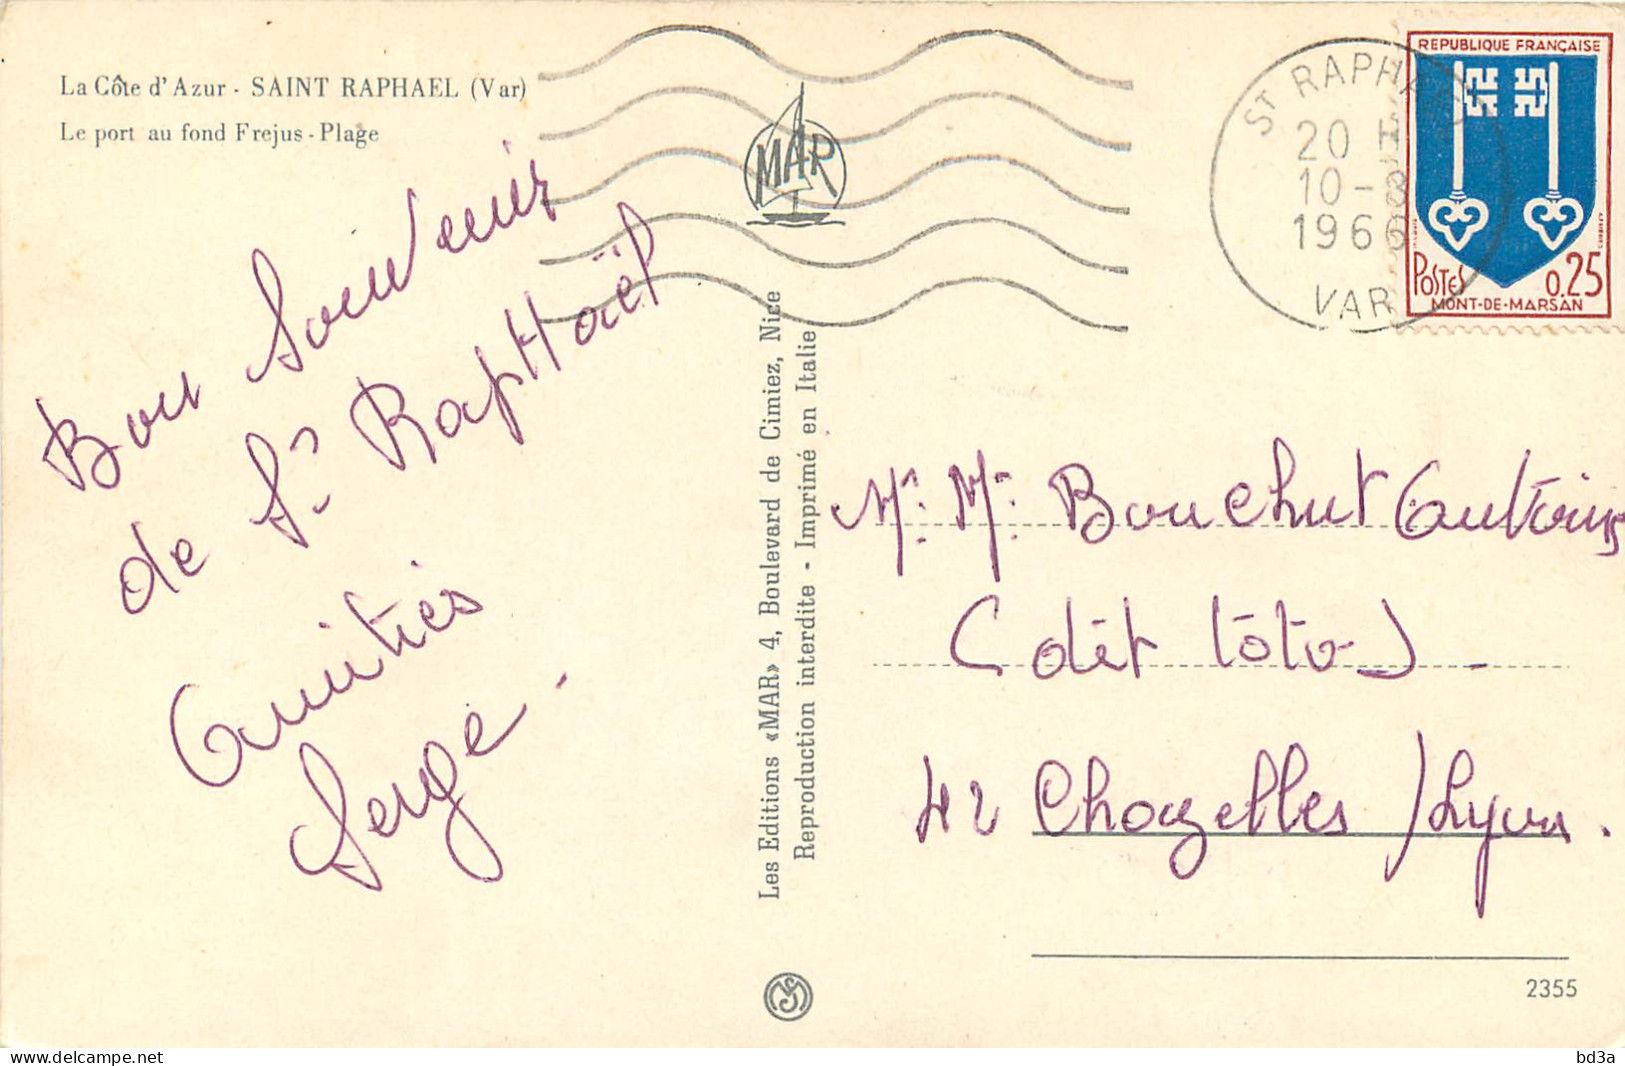 La Côte d'Azur - SAINT RAPHAEL (Var)
Le port au fond Frejus - Plage
Bon Souvenir
de St RapHaël
Amitiés
Serge.
MAR
Les Editions «MAR» 4, Boulevard de Cimiez, Nice
Reproduction interdite - Imprimé en Italie
ST RAPHAEL
20 H
10-8
1966
VAR
REPUBLIQUE FRANÇAISE
POSTES 0.25
MONT-DE-MARSAN
Mr. Mr. Bouchut Antoine
(dit toto) -
42 Chazelles /Lyon.
2355
delcampe.net
bd3a